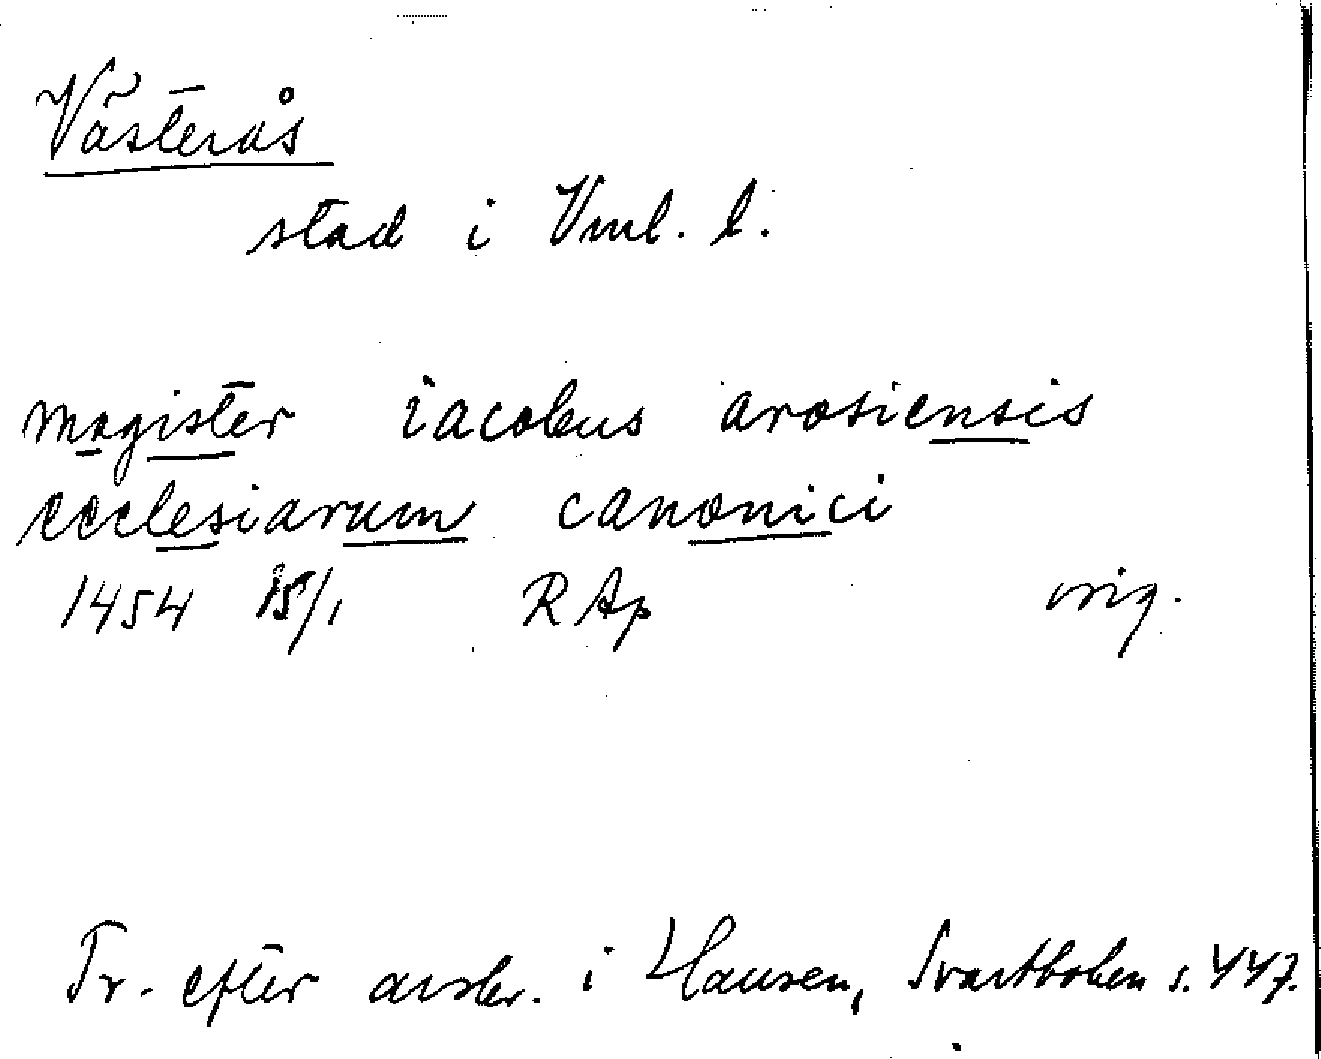 Västerås
stad i Vml. l.
magister iacobus arosiensis
ecclesiarum canonici
1454 15/1 RAp orig.
Tr. efter avskr. i Hausen, Svartboken s. 447.